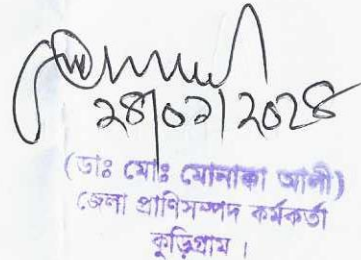 ২৪|০১|২০২৪
(ডাঃ মোঃ মোনাক্কা আলী)
জেলা প্রাণিসম্পদ কর্মকর্তা
কুড়িগ্রাম ।